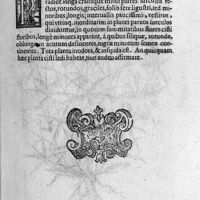 radice longa crassaque mittit plures surculos re-
ctos, rotundos, graciles, foliis fere ligustri, sed mi
noribus, longis, interuallis paucissimis, vestitos,
qui vtrinq. interdum in plures paruos surculos
diuiduntur, in quorum summitatibus flores cisti
floribus, longe minores apparent, à quibus siliquæ, rotundæ,
oblongæ in acutum desinentes, nigra minutum semen conti-
nentes. Tota planta inodora, & insipida est. An quicquam
hæc planta cisti ledi habeat, non audeo affirmare.